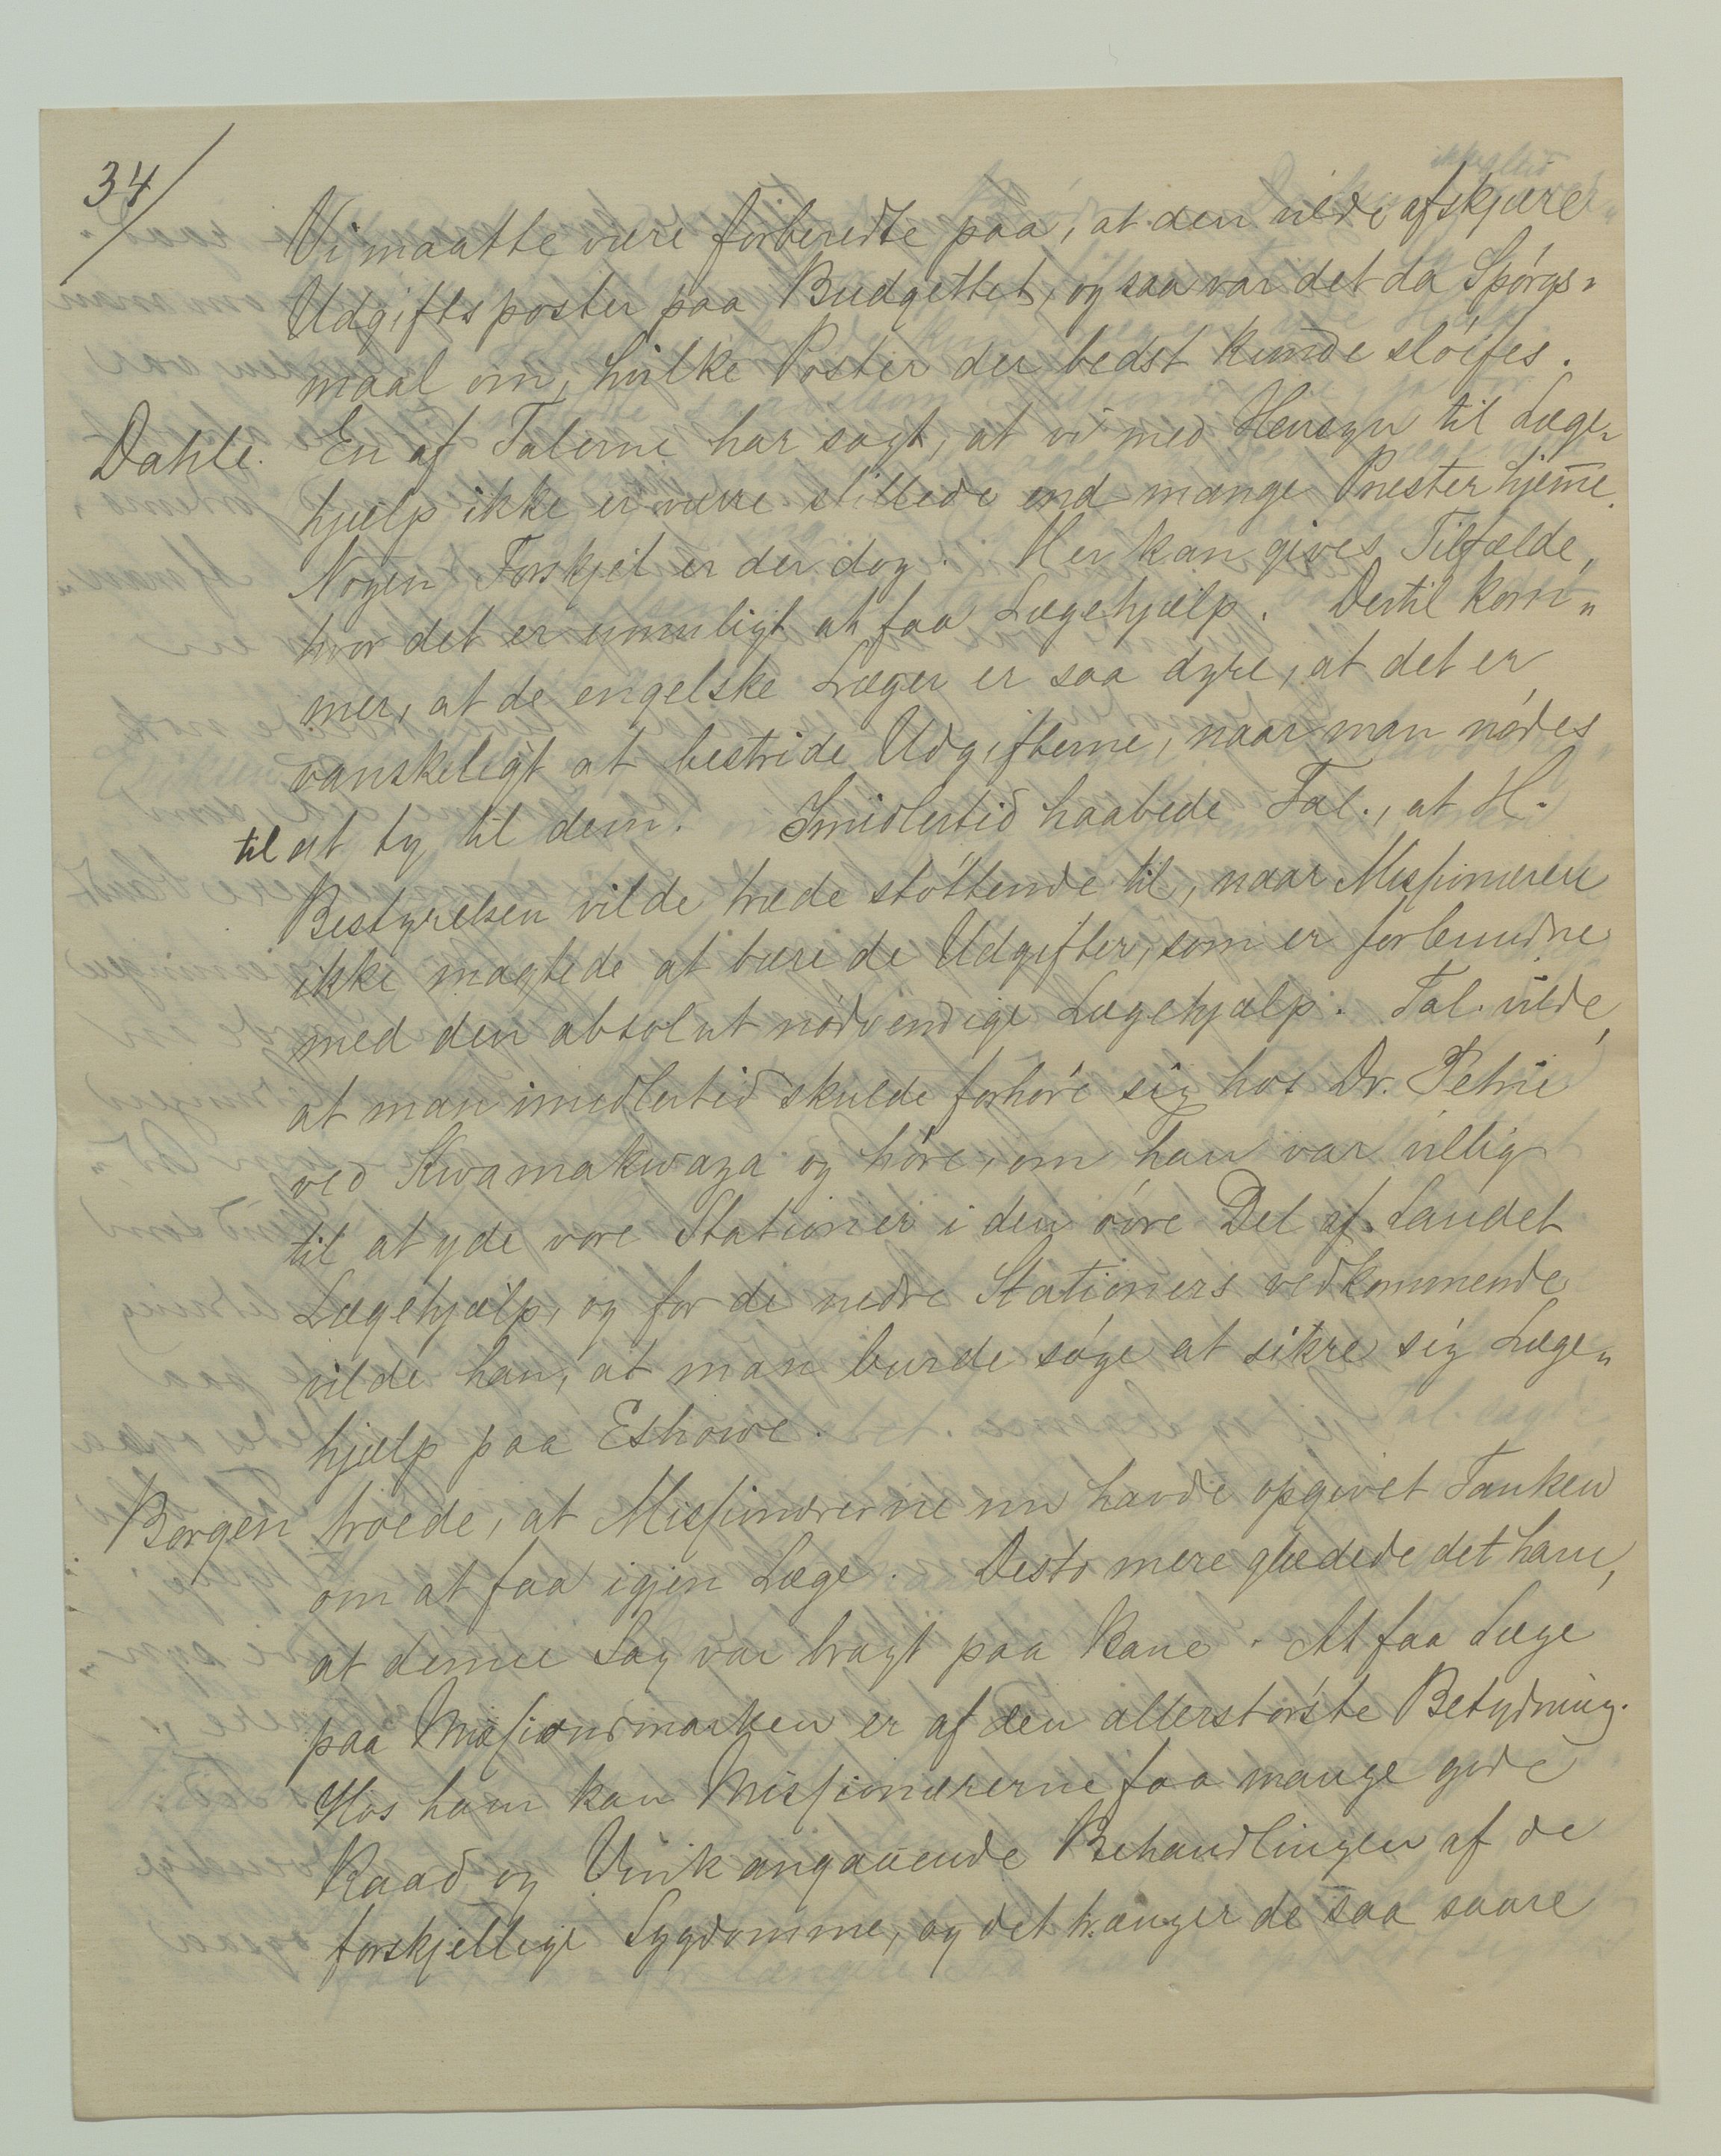 34/
Vi maatte være forberedte paa, at den vilde afskjære
Udgiftsposter paa Budgettet, og saa var det da Spørgs-
maal om, hvilke Poster der bedst kunde sløifes.
Dahle. En af Talerne har sagt, at vi med Hensyn til Læge-
hjælp ikke er værre stillede end mange Prester hjemme.
Nogen Forskjel er der dog. Her kan gives Tilfælde,
hvor det er umuligt at faa Lægehjælp. Dertil kom-
mer, at de engelske Læger er saa dyre, at det er
vanskeligt at bestride Udgifterne, naar man nødes
til at ty til dem. Imidlertid haabede Tal., at H.
Bestyrelsen vilde træde støttende til, naar Missionæren
ikke magtede at bære de Udgifter, som er forbundne
med den absolut nødvendige Lægehjælp. Tal. vilde,
at man imidlertid skulde forhøre sig hos Dr. Petrie
ved Kwamakwaza og høre, om han var villig
til at yde vore Stationer i den øvre Del af Landet
Lægehjælp, og for de nedre Stationers vedkommende
vilde han, at man burde søge at sikre sig Læge-
hjælp paa Eshowe.
Borgen troede, at Missionærerne nu havde opgivet Tanken
om at faa igjen Læge. Desto mere glædede det ham,
at denne Sag var bragt paa Bane. At faa Læge
paa Missionsmarken er af den allerstørste Betydning.
Hos ham kan Missionærerne faa mange gode
Raad og Vink angaaende Behandlingen af de
forskjellige Sygdomme, og det trænger de saa saare